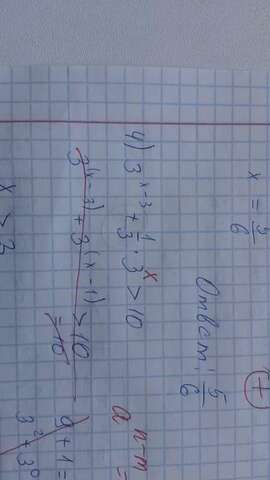 x = 5/6
Ответ: 5/6
+
4) 3^(x-3) + 1/3 · 3^x > 10
3^(x-3) + 3^(x-1) > 10
= 10
x > 3
9 + 1 =
3^2 + 3^0
a^(n-m) =